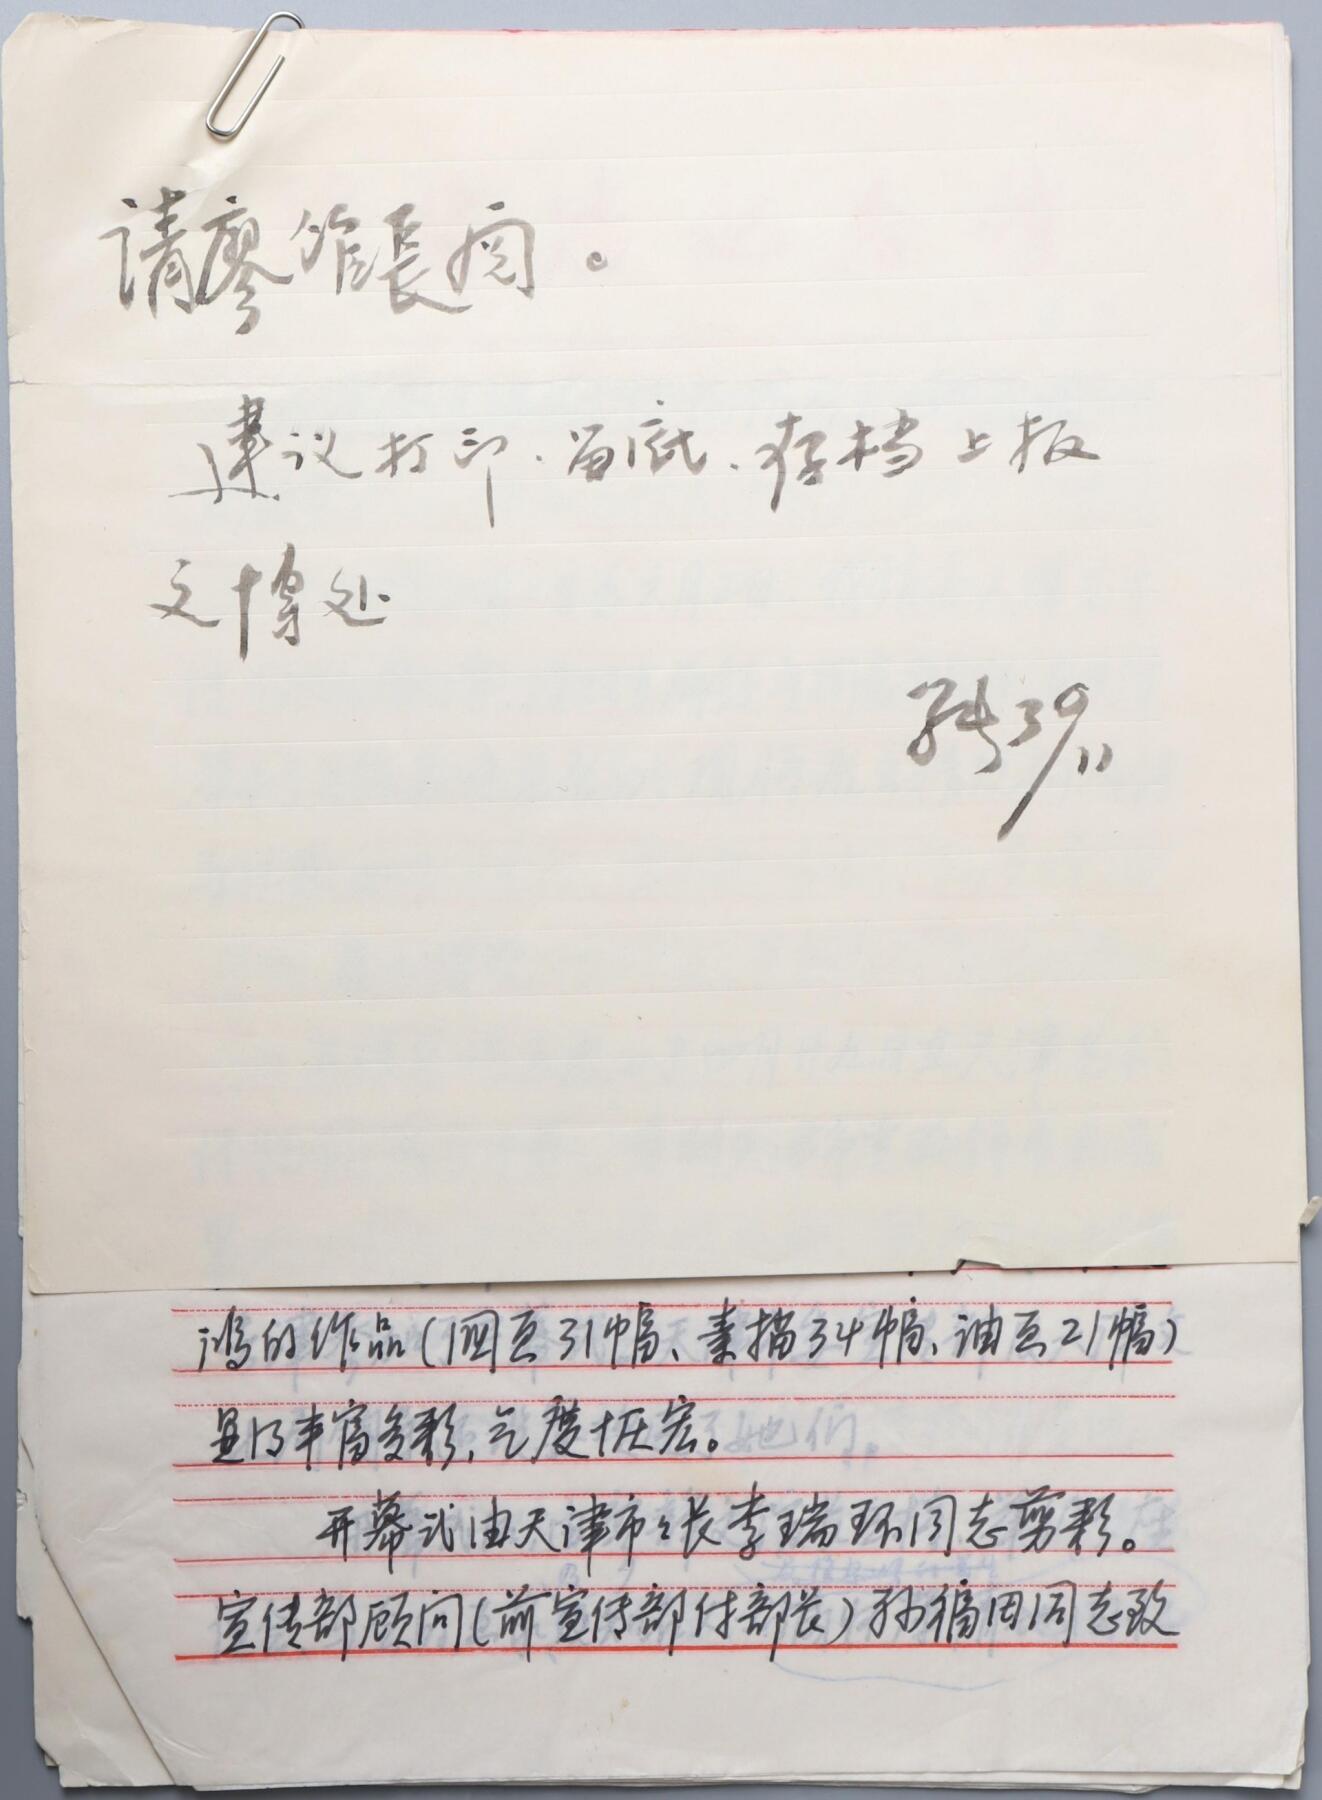 请廖馆長阅。
建议打印、留底、存档上报
文博处
鸿的作品(国画31幅、素描34幅、油画21幅)
显得丰富多彩,气度恢宏。
开幕式由天津市々长李瑞环同志剪彩。
宣传部顾问(前宣传部付部长)孙福田同志致